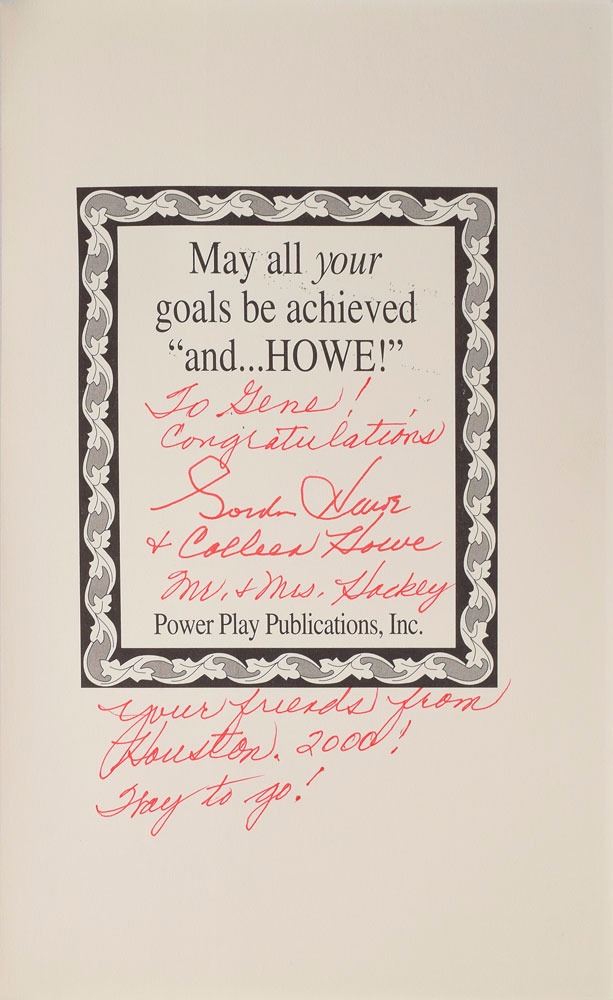 May all your
goals be achieved
“and...HOWE!”
To Gene!
Congratulations
Gordie Howe
& Colleen Howe
Mr. & Mrs. Hockey
Power Play Publications, Inc.
your friends from
Houston. 2000!
Way to go!